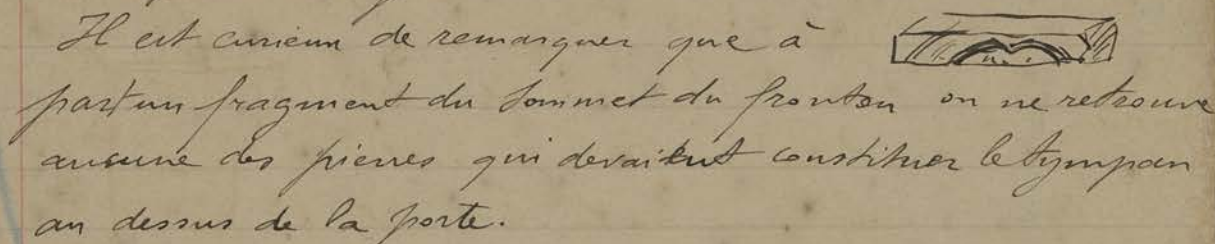 Il est curieux de remarquer que à
part un fragment du sommet du fronton on ne retrouve
aucune des pierres qui devaient constituer le tympan
au dessus de la porte.